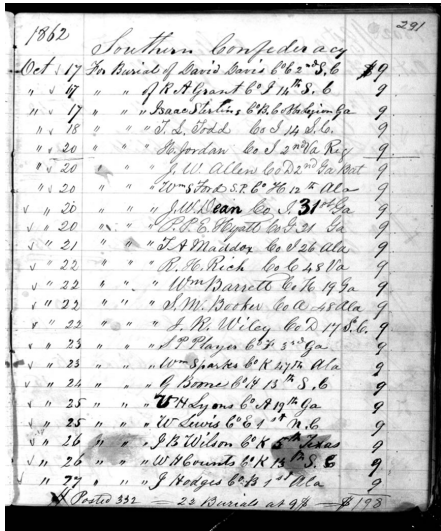 291
1862
Southern Confederacy
Oct " 17 For Burial of David Davis Co E 2nd S.C $9
" " 17 " " " of R A Grant Co I 14th S.C 9
" " 17 " " " Isaac Sterling Co B. Co Legion Ga 9
" " 18 " " " T. L. Todd Co I 14 S.C. 9
" " 20 " " " H. Jordan Co I 2nd Va Reg 9
" " 20 " " " J. W. Allen Co D 2nd Ga Bat 9
" " 20 " " " Wm S Ford S.P. Co H 12th Ala 9
" " 20 " " " J. W. Dean Co. I. 31st Ga 9
" " 20 " " " P. P. E. Hyatt Co G 21 Ga 9
" " 21 " " " T. A Maddox Co I 26 Ala 9
" " 22 " " " R. H. Rich Co C 48 Va 9
" " 22 " " " Wm Barrett Co H 19 Ga 9
" " 22 " " " S. M. Booker Co A 48 Ala 9
" " 22 " " " J. R. Wiley Co D 17 S.C. 9
" " 23 " " " S P Player Co F 3rd Ga 9
" " 23 " " " Wm Sparks Co K 47th Ala 9
" " 24 " " " G Boone Co H 13th S.C 9
" " 25 " " " H Lyons Co A 19th Ga 9
" " 25 " " " W Lewis Co E 1st N.C 9
" " 26 " " " J B Wilson Co K 5th Texas 9
" " 26 " " " W H Counts Co K 13th S.C 9
" " 27 " " " J Hodges Co B 1st Ala 9
Posted 332 = 22 Burials at 9$ = $198